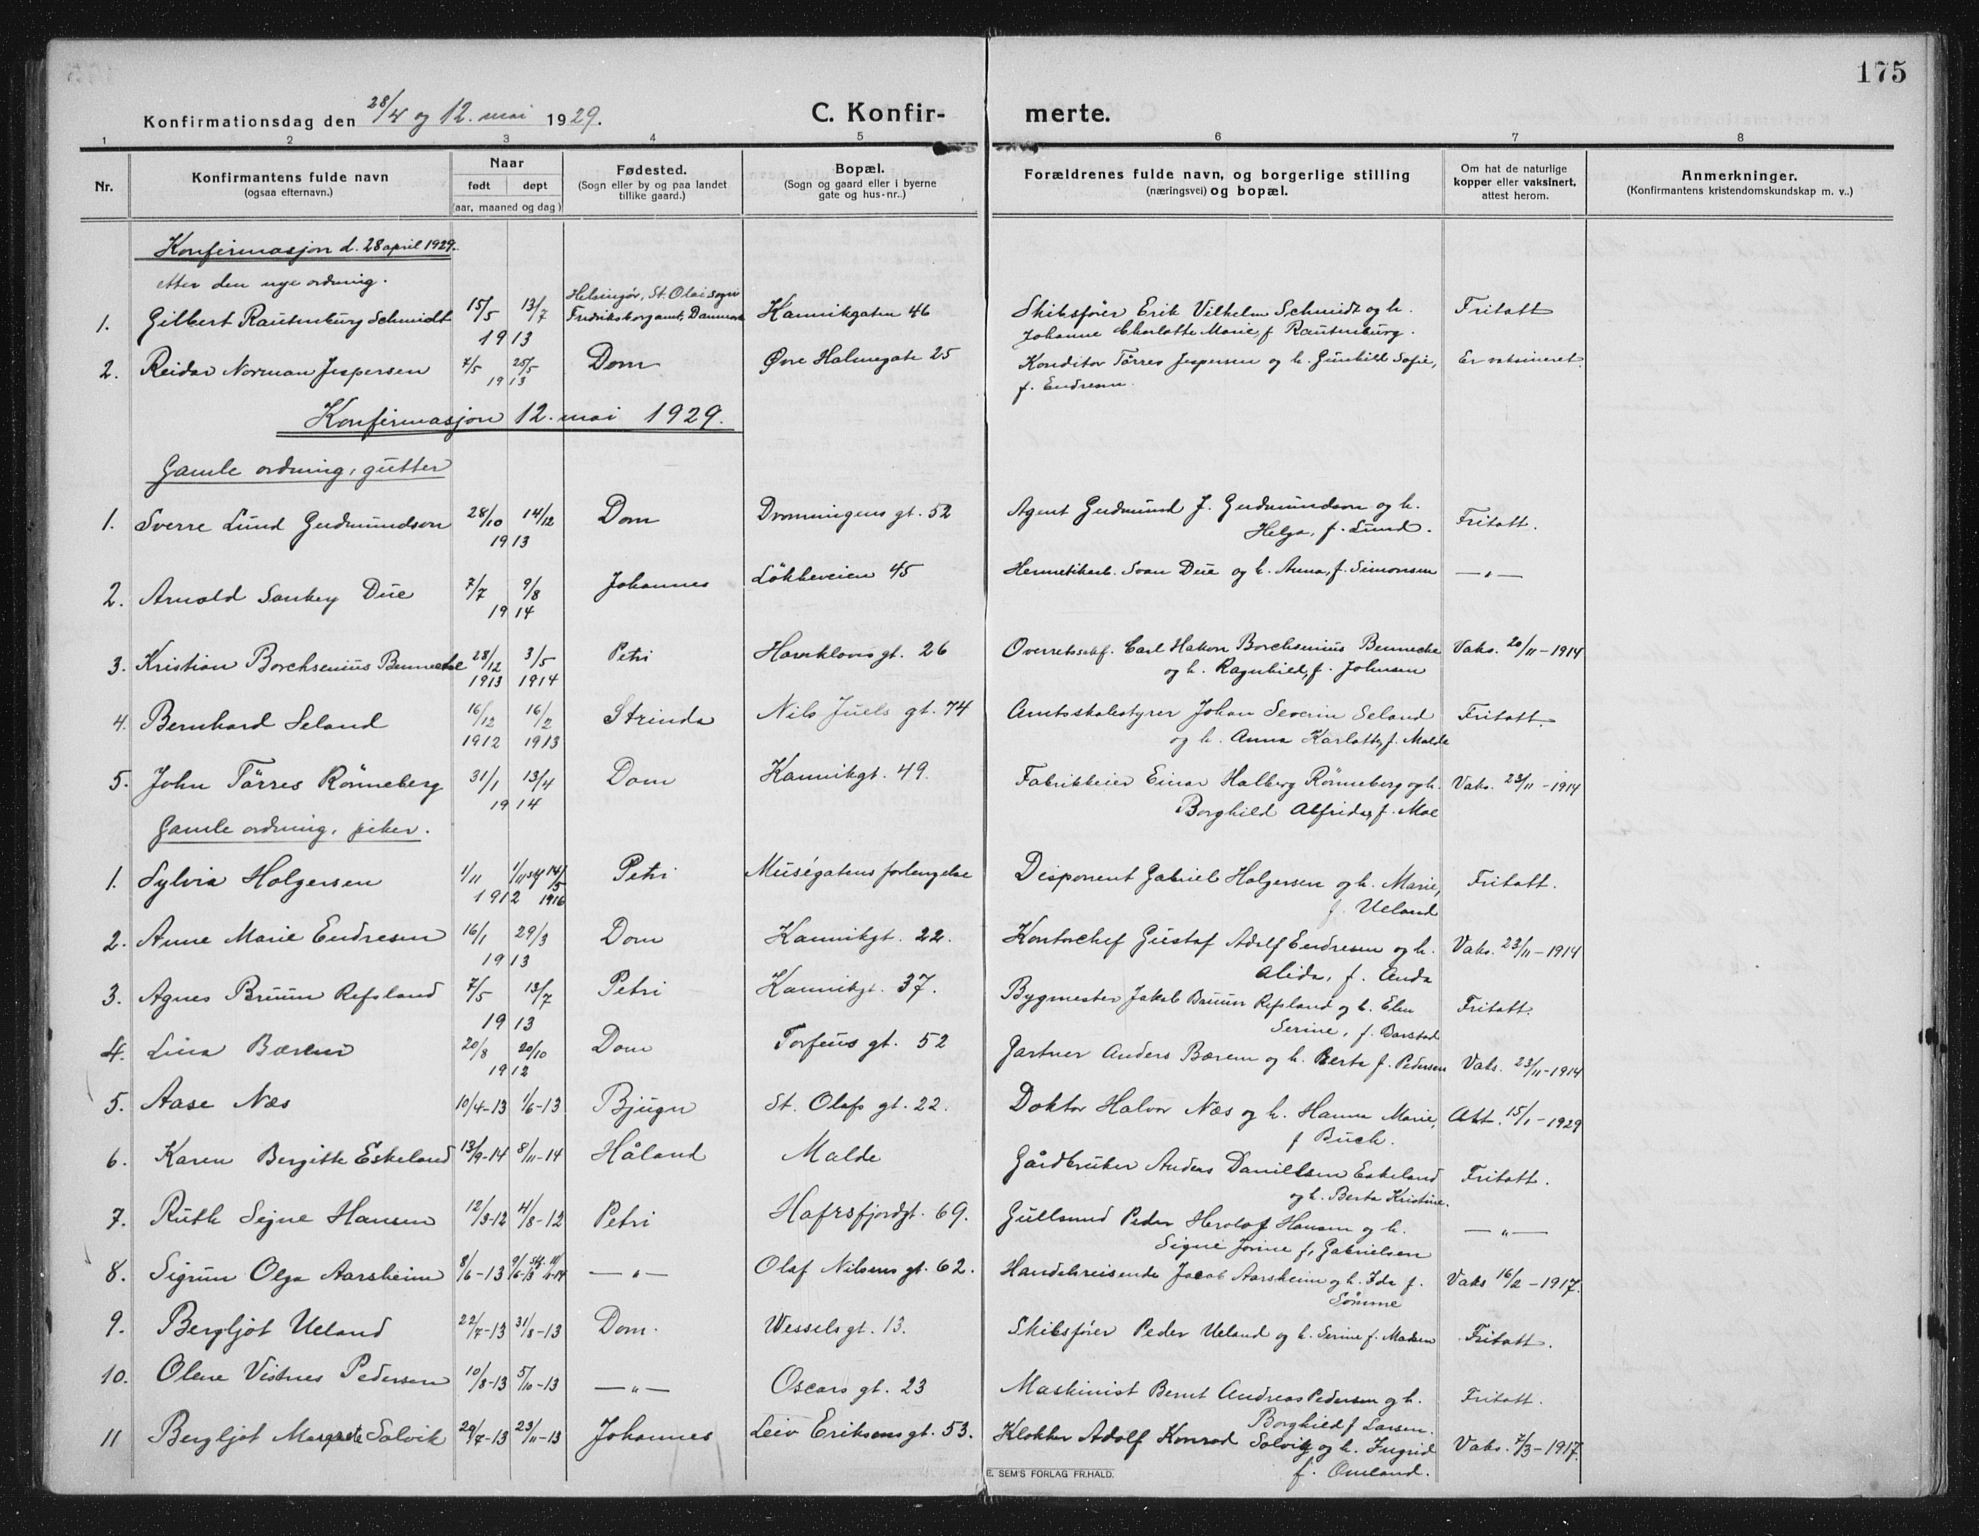 175
Konfirmationsdag den 28/4 og 12. mai 1929.
C. Konfirmerte.
1 2 3 4 5 6 7 8
Nr.
Konfirmantens fulde navn
(ogsaa efternavn.)
Naar
født døpt
(aar, maaned og dag)
Fødested.
(Sogn eller by og paa landet
tillike gaard.)
Bopæl.
(Sogn og gaard eller i byerne
gate og hus-nr..)
Forældrenes fulde navn, og borgerlige stilling
(næringsvei) og bopæl.
Om hat de naturlige
kopper eller vaksinert,
attest herom.
Anmerkninger.
(Konfirmantens kristendomskundskap m. v..)
Konfirmasjon d. 28 april 1929.
etter den nye ordning.
Helsingør, St. Olai sogn
1. Gilbert Rautenburg Schmidt 15/5 13/7 1913 Fredriksborg amt, Danmark Kannikgaten 46 Skibsfører Erik Vilhelm Schmidt og h. Fritatt
Johanne Charlotte Marie, f Rautenburg.
2. Reidar Norman Jespersen 7/5 25/5 1913 Dom Øvre Holmegate 25 Konditor Tórres Jespersen og h. Gunhild Sofie, Er vaksineret.
f. Endresen.
Konfirmasjon 12. mai 1929.
Gamle ordning, gutter
1. Sverre Lund Gudmundson 28/10 14/12 1913 Dom Dronningens gt. 52 Agent Gudmund J. Gudmundson og h. Fritatt.
Helga, f. Lund.
2. Arnold Sankey Due 7/7 9/8 1914 Johannes Løkkeveien 45 Hermetikarb. Svan Due og h. Anna, f. Simonsen —"—
3. Kristian Borchsenius Bennecke 28/12 1913 3/5 1914 Petri Hauklovs gt. 26 Overretssakf. Carl Hakon Borchsenius Bennecke Vaks. 20/11-1914
og h. Ragnhild, f. Johnsen
4. Bernhard Seland 16/12 1912 16/2 1913 Strinda Nils Juels gt. 74 Amtsskolestyrer Johan Severin Seland Fritatt.
og h. Anna Karlotte, f. Malde
5. John Tórres Rönneberg 31/1 13/4 1914 Dom Kannikgt. 49. Fabrikkeier Einar Halberg Rönneberg og h. Vaks. 23/11-1914
Borghild Alfrida, f. Moe
Gamle ordning, piker.
1. Sylvia Holgersen 1/11 1/11 st 14/5 1912 1916 Petri Muségatens forlengelse Disponent Gabriel Holgersen og h. Marie, Fritatt.
f. Ueland
2. Anne Marie Endresen 16/1 29/3 1913 Dom Kannikgt. 22. Kontorchef Gustaf Adolf Endresen og h. Vaks. 23/11-1914
Alida, f. Anda
3. Agnes Bruun Refsland 7/5 13/7 1913 Petri Kannikgt. 37. Bygmester Jakob Bruun Refsland og h. Elen Fritatt.
Serine, f. Barstad
4. Lina Bærem 20/8 20/10 1912 Dom Torfeus gt. 52 Gartner Anders Bærem og h. Berta f. Pedersen Vaks. 23/11-1914
5. Aase Næs 10/4-13 1/6-13 Bjugn St. Olafs gt. 22. Doktor Halvor Næs og h. Hanna Marie, Att. 15/1-1929
f Buch.
6. Karen Bergitte Eskeland 13/9-14 8/11-14 Håland Malde Gårdbruker Anders Daniellsen Eskeland Fritatt.
og h. Berta Kristine.
7. Ruth Signe Hansen 12/3-12 4/8-12 Petri Hafrsfjordgt. 69. Gullsmed Peder Herolof Hansen og h. —"—
Signe Jorine f, Gabrielsen
8. Sigrun Olga Aarsheim 8/6-13 9/6-13 —"— Olaf Nilsens gt. 62. Handelsreisende Jacob Aarsheim og h. Ida f. Vaks 16/2-1917.
Sømme
9. Bergljot Ueland 22/7-13 31/8-13 Dom. Wessels gt. 13. Skibsfører Peder Ueland og h. Serine f. Madsen Fritatt.
10. Olene Vistnes Pedersen 10/8-13 5/10-13 —"— Oscars gt. 23 Maskinist Bernt Andreas Pedersen og h. Fritatt.
Borghild f Larsen.
11 Bergljot Margrete Solvik 29/7-13 23/11-13 Johannes Leiv Eriksens gt. 53. Klokker Adolf Konrad Solvig og h. Ingrid Vaks. 7/3-1917.
f. Omland.
E. SEM'S FORLAG FR.HALD.